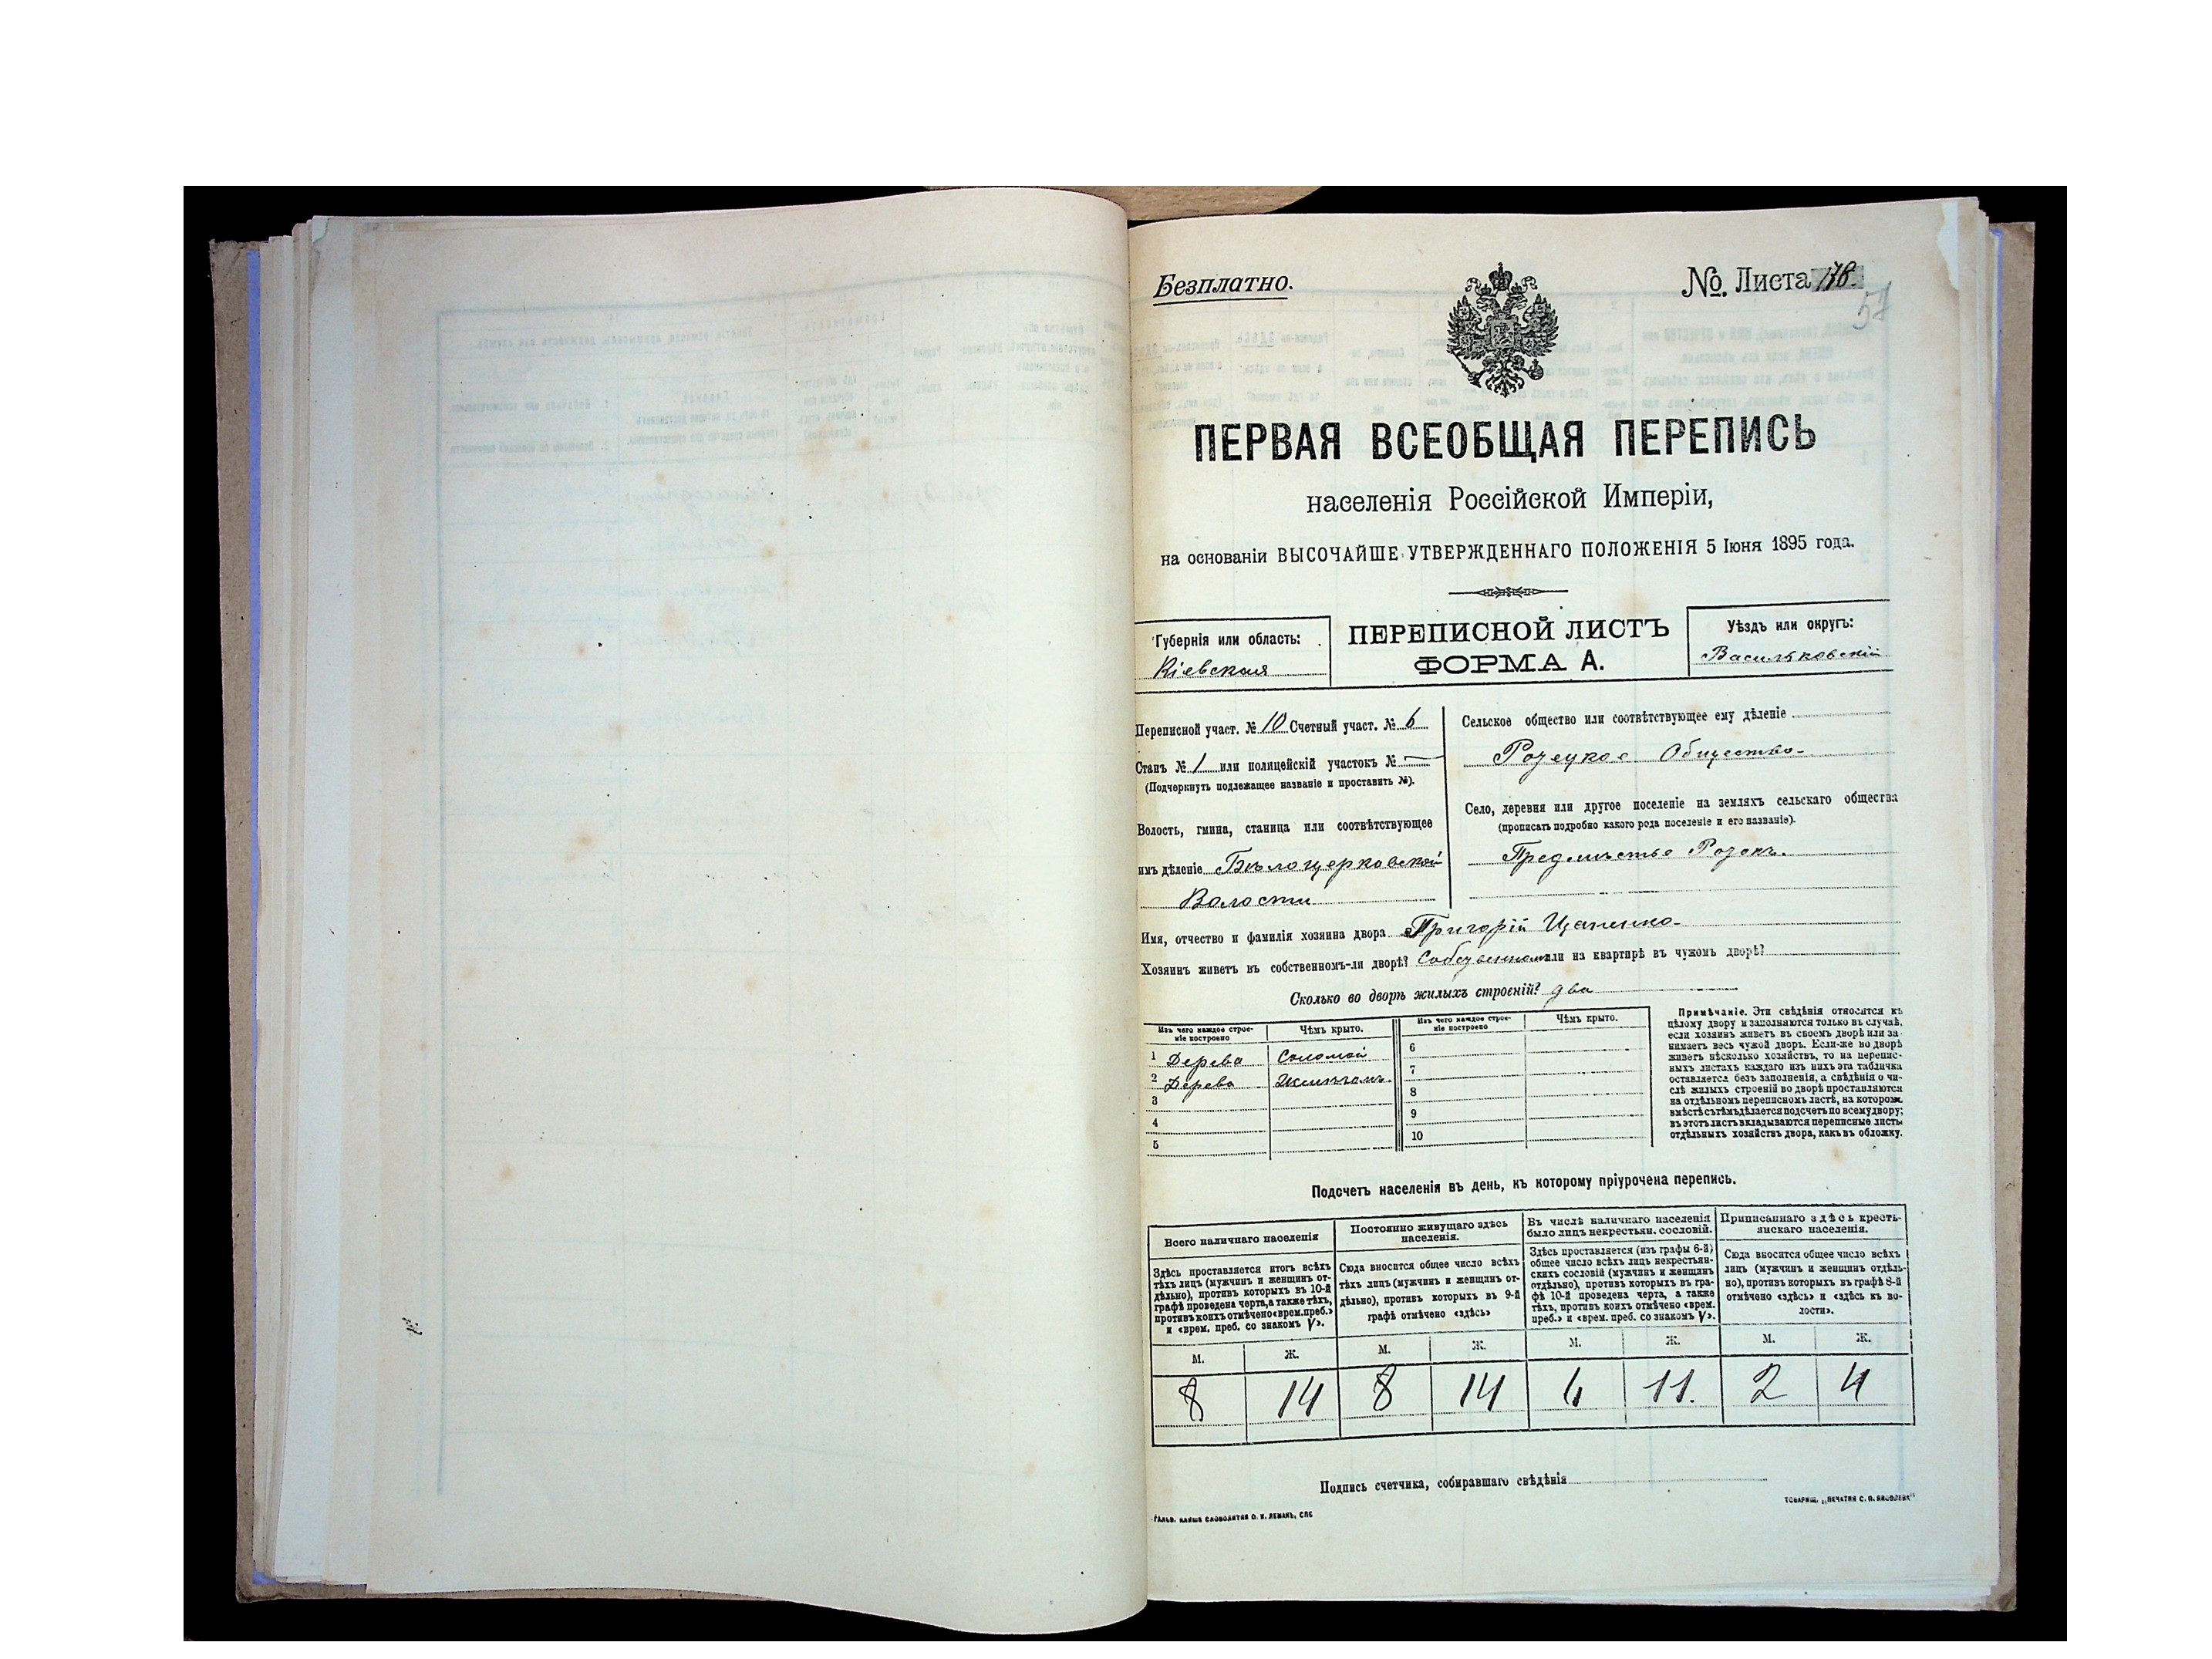 Безплатно.
№ Листа 178.
57
ПЕРВАЯ ВСЕОБЩАЯ ПЕРЕПИСЬ
населенія Россійской Имперіи,
на основаніи ВЫСОЧАЙШЕ УТВЕРЖДЕННАГО ПОЛОЖЕНІЯ 5 Іюня 1895 года.
Губернія или область:
Кіевская
ПЕРЕПИСНОЙ ЛИСТЪ
ФОРМА А.
Уѣздъ или округъ:
Васильковскій
Переписной участ. № 10 Счетный участ. № 6
Станъ № 1 или полицейскій участокъ № —
(Подчеркнуть подлежащее названіе и проставить №).
Волость, гмина, станица или соотвѣтствующее
имъ дѣленіе Бѣлоцерковской
Волости
Сельское общество или соотвѣтствующее ему дѣленіе
Роцецкое Общество
Село, деревня или другое поселеніе на земляхъ сельскаго общества
(прописать подробно какого рода поселеніе и его названіе).
Предмѣстье
Имя, отчество и фамилія хозяина двора Григорій Цапенко
Хозяинъ живетъ въ собственномъ-ли дворѣ? Собственномъ или на квартирѣ въ чужомъ дворѣ?
Сколько во дворѣ жилыхъ строеній? два
Изъ чего каждое строе-
ніе построено
Чѣмъ крыто.
Изъ чего каждое строе-
ніе построено
Чѣмъ крыто.
1 Дерева Соломой
2 Дерева
3
4
5
6
7
8
9
10
Примѣчаніе. Эти свѣдѣнія относятся къ
цѣлому двору и заполняются только въ случаѣ,
если хозяинъ живетъ въ своемъ дворѣ или за-
нимаетъ весь чужой дворъ. Если-же во дворѣ
живетъ нѣсколько хозяйствъ, то на перепис-
ныхъ листахъ каждаго изъ нихъ эта табличка
оставляется безъ заполненія, а свѣдѣнія о чи-
слѣ жилыхъ строеній во дворѣ проставляются
на отдѣльномъ переписномъ листѣ, на которомъ
вмѣстѣ съ тѣмъ дѣлается подсчетъ по всему двору;
въ этотъ листъ вкладываются переписные листы
отдѣльныхъ хозяйствъ двора, какъ въ обложку.
Подсчетъ населенія въ день, къ которому пріурочена перепись.
Всего наличнаго населенія
Здѣсь проставляется итогъ всѣхъ
тѣхъ лицъ (мужчинъ и женщинъ от-
дѣльно), противъ которыхъ въ 10-й
графѣ проведена черта, а также тѣхъ,
противъ коихъ отмѣчено «врем. преб.»
и «врем. преб. со знакомъ V».
Постоянно живущаго здѣсь
населенія.
Сюда вносится общее число всѣхъ
тѣхъ лицъ (мужчинъ и женщинъ от-
дѣльно), противъ которыхъ въ 9-й
графѣ отмѣчено «здѣсь»
Въ числѣ наличнаго населенія
было лицъ некрестьян. сословій.
Здѣсь проставляется (изъ графы 6-й)
общее число всѣхъ лицъ некрестьян-
скихъ сословій (мужчинъ и женщинъ
отдѣльно), противъ которыхъ въ гра-
фѣ 10-й проведена черта, а также
тѣхъ, противъ коихъ отмѣчено «врем.
преб.» и «врем. преб. со знакомъ V».
Приписаннаго здѣсь кресть-
янскаго населенія.
Сюда вносится общее число всѣхъ
лицъ (мужчинъ и женщинъ отдѣль-
но), противъ которыхъ въ графѣ 8-й
отмѣчено «здѣсь» и «здѣсь къ во-
лости».
М. Ж. М. Ж. М. Ж. М. Ж.
8 14 8 14 6 11. 2 4
Подпись счетчика, собиравшаго свѣдѣнія
ГАЛЬВ. КЛИШЕ СЛОВОЛИТНИ О. И. ЛЕМАНЪ, СПБ
ТОВАРИЩ. „ПЕЧАТНЯ С. П. ЯКОВЛЕВА"